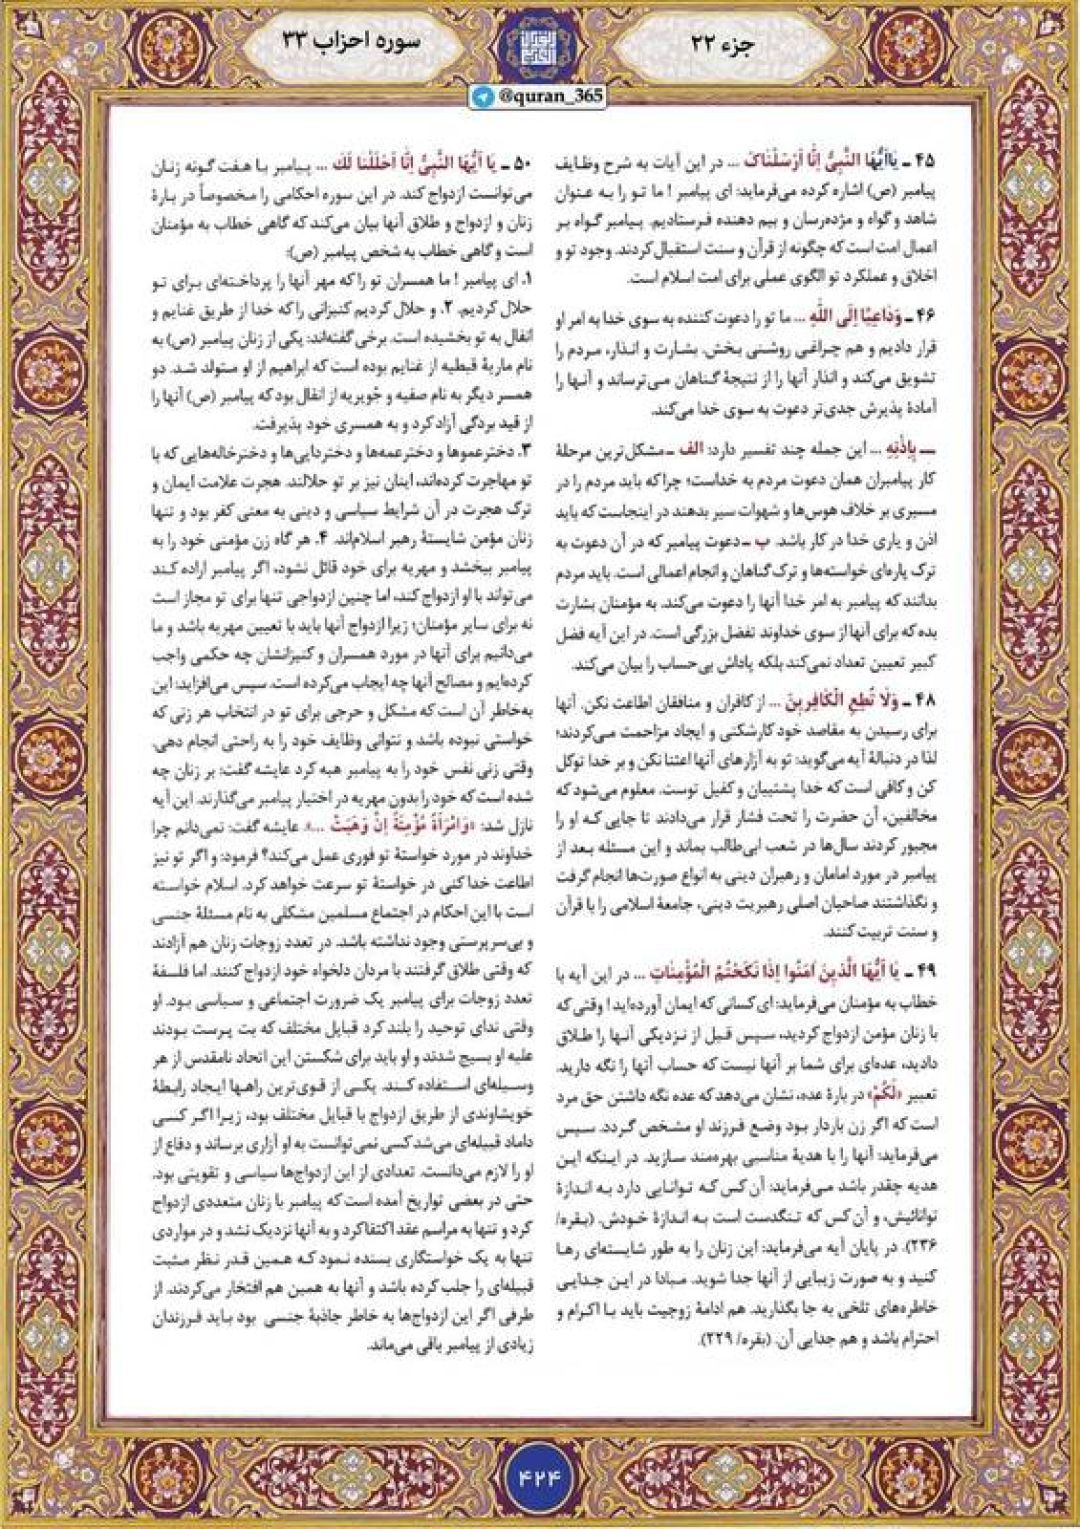 جزء ۲۲
سوره احزاب ۳۳
@quran_365
۴۵ ـ یٰااَیُّهَا النَّبِیُّ اِنّٰا اَرْسَلْنٰاکَ ... در این آیات به شرح وظایف
پیامبر (ص) اشاره کرده می‌فرماید: ای پیامبر! ما تو را به عنوان
شاهد و گواه و مژده‌رسان و بیم دهنده فرستادیم. پیامبر گواه بر
اعمال امت است که چگونه از قرآن و سنت استقبال کردند. وجود تو و
اخلاق و عملکرد تو الگوی عملی برای امت اسلام است.
۴۶ ـ وَدٰاعِیًا اِلَی اللّٰهِ ... ما تو را دعوت کننده به سوی خدا به امر او
قرار دادیم و هم چراغی روشنی بخش. بشارت و انذار، مردم را
تشویق می‌کند و انذار آنها را از نتیجهٔ گناهان می‌ترساند و آنها را
آمادهٔ پذیرش جدی‌تر دعوت به سوی خدا می‌کند.
ـــ بِاِذْنِهِ ... این جمله چند تفسیر دارد: الف ـ مشکل‌ترین مرحلهٔ
کار پیامبران همان دعوت مردم به خداست؛ چرا که باید مردم را در
مسیری بر خلاف هوس‌ها و شهوات سیر بدهند در اینجاست که باید
اذن و یاری خدا در کار باشد. ب ـ دعوت پیامبر که در آن دعوت به
ترک پاره‌ای خواسته‌ها و ترک گناهان و انجام اعمالی است. باید مردم
بدانند که پیامبر به امر خدا آنها را دعوت می‌کند. به مؤمنان بشارت
بده که برای آنها از سوی خداوند تفضل بزرگی است. در این آیه فضل
کبیر تعیین تعداد نمی‌کند بلکه پاداش بی‌حساب را بیان می‌کند.
۴۸ ـ وَلٰا تُطِعِ الْکٰافِرِینَ ... از کافران و منافقان اطاعت نکن. آنها
برای رسیدن به مقاصد خود کارشکنی و ایجاد مزاحمت می‌کردند؛
لذا در دنبالهٔ آیه می‌گوید: تو به آزارهای آنها اعتنا نکن و بر خدا توکل
کن و کافی است که خدا پشتیبان و کفیل توست. معلوم می‌شود که
مخالفین، آن حضرت را تحت فشار قرار می‌دادند تا جایی که او را
مجبور کردند سال‌ها در شعب ابی‌طالب بماند و این مسئله بعد از
پیامبر در مورد امامان و رهبران دینی به انواع صورت‌ها انجام گرفت
و نگذاشتند صاحبان اصلی رهبریت دینی، جامعهٔ اسلامی را با قرآن
و سنت تربیت کنند.
۴۹ ـ یٰا اَیُّهَا الَّذِینَ اٰمَنُوا اِذٰا نَکَحْتُمُ الْمُؤْمِنٰاتِ ... در این آیه با
خطاب به مؤمنان می‌فرماید: ای کسانی که ایمان آورده‌اید! وقتی که
با زنان مؤمن ازدواج کردید، سپس قبل از نزدیکی آنها را طلاق
دادید، عده‌ای برای شما بر آنها نیست که حساب آنها را نگه دارید.
تعبیر «لَکُمْ» در بارهٔ عده، نشان می‌دهد که عده نگه داشتن حق مرد
است که اگر زن باردار بود وضع فرزند او مشخص گردد. سپس
می‌فرماید: آنها را با هدیهٔ مناسبی بهره‌مند سازید. در اینکه این
هدیه چقدر باشد می‌فرماید: آن کس که توانایی دارد به اندازهٔ
توانائیش، و آن کس که تنگدست است به اندازهٔ خودش. (بقره/
۲۳۶). در پایان آیه می‌فرماید: این زنان را به طور شایسته‌ای رها
کنید و به صورت زیبایی از آنها جدا شوید. مبادا در این جدایی
خاطره‌های تلخی به جا بگذارید. هم ادامهٔ زوجیت باید با اکرام و
احترام باشد و هم جدایی آن. (بقره/ ۲۲۹).
۵۰ ـ یٰا اَیُّهَا النَّبِیُّ اِنّٰا اَحْلَلْنٰا لَکَ ... پیامبر با هفت گونه زنان
می‌توانست ازدواج کند. در این سوره احکامی را مخصوصاً در بارهٔ
زنان و ازدواج و طلاق آنها بیان می‌کند که گاهی خطاب به مؤمنان
است و گاهی خطاب به شخص پیامبر (ص):
۱. ای پیامبر! ما همسران تو را که مهر آنها را پرداخته‌ای برای تو
حلال کردیم. ۲. و حلال کردیم کنیزانی را که خدا از طریق غنایم و
انفال به تو بخشیده است. برخی گفته‌اند: یکی از زنان پیامبر (ص) به
نام ماریهٔ قبطیه از غنایم بوده است که ابراهیم از او متولد شد. دو
همسر دیگر به نام صفیه و جُویریه از انفال بود که پیامبر (ص) آنها را
از قید بردگی آزاد کرد و به همسری خود پذیرفت.
۳. دخترعموها و دخترعمه‌ها و دختردایی‌ها و دخترخاله‌هایی که با
تو مهاجرت کرده‌اند، اینان نیز بر تو حلالند. هجرت علامت ایمان و
ترک هجرت در آن شرایط سیاسی و دینی به معنی کفر بود و تنها
زنان مؤمن شایستهٔ رهبر اسلام‌اند. ۴. هر گاه زن مؤمنی خود را به
پیامبر ببخشد و مهریه برای خود قائل نشود، اگر پیامبر اراده کند
می‌تواند با او ازدواج کند، اما چنین ازدواجی تنها برای تو مجاز است
نه برای سایر مؤمنان؛ زیرا ازدواج آنها باید با تعیین مهریه باشد و ما
می‌دانیم برای آنها در مورد همسران و کنیزانشان چه حکمی واجب
کرده‌ایم و مصالح آنها چه ایجاب می‌کرده است. سپس می‌افزاید: این
به‌خاطر آن است که مشکل و حرجی برای تو در انتخاب هر زنی که
خواستی نبوده باشد و بتوانی وظایف خود را به راحتی انجام دهی.
وقتی زنی نفس خود را به پیامبر هبه کرد عایشه گفت: بر زنان چه
شده است که خود را بدون مهریه در اختیار پیامبر می‌گذارند. این آیه
نازل شد: «وَ امْرَاَةً مُؤْمِنَةً اِنْ وَهَبَتْ ...». عایشه گفت: نمی‌دانم چرا
خداوند در مورد خواستهٔ تو فوری عمل می‌کند؟ فرمود: و اگر تو نیز
اطاعت خدا کنی در خواستهٔ تو سرعت خواهد کرد. اسلام خواسته
است با این احکام در اجتماع مسلمین مشکلی به نام مسئلهٔ جنسی
و بی‌سرپرستی وجود نداشته باشد. در تعدد زوجات زنان هم آزادند
که وقتی طلاق گرفتند با مردان دلخواه خود ازدواج کنند. اما فلسفهٔ
تعدد زوجات برای پیامبر یک ضرورت اجتماعی و سیاسی بود. او
وقتی ندای توحید را بلند کرد قبایل مختلف که بت پرست بودند
علیه او بسیج شدند و او باید برای شکستن این اتحاد نامقدس از هر
وسیله‌ای استفاده کند. یکی از قوی‌ترین راهها ایجاد رابطهٔ
خویشاوندی از طریق ازدواج با قبایل مختلف بود، زیرا اگر کسی
داماد قبیله‌ای می‌شد کسی نمی‌توانست به او آزاری برساند و دفاع از
او را لازم می‌دانست. تعدادی از این ازدواج‌ها سیاسی و تقویتی بود.
حتی در بعضی تواریخ آمده است که پیامبر با زنان متعددی ازدواج
کرد و تنها به مراسم عقد اکتفا کرد و به آنها نزدیک نشد و در مواردی
تنها به یک خواستگاری بسنده نمود که همین قدر نظر مثبت
قبیله‌ای را جلب کرده باشد و آنها به همین هم افتخار می‌کردند. از
طرفی اگر این ازدواج‌ها به خاطر جاذبهٔ جنسی بود باید فرزندان
زیادی از پیامبر باقی می‌ماند.
۴۲۴